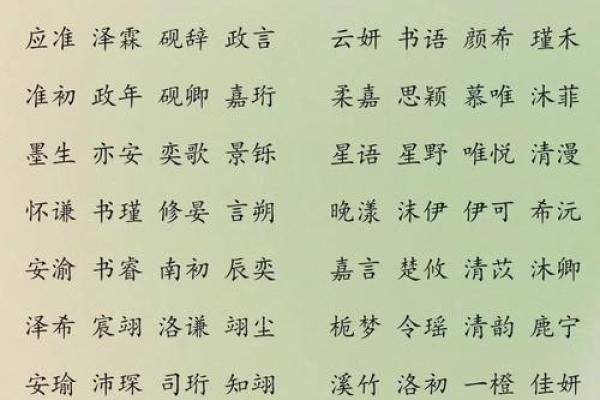 应准 泽霖 砚辞 政言 云妍 书语 颜希 瑾禾
准初 政年 砚卿 嘉珩 柔嘉 思颖 慕唯 沐菲
墨生 亦安 奕歌 景铄 星语 星野 唯悦 清漫
怀谦 书瑾 修晏 言朔 晚漾 沫伊 伊可 希沅
安渝 书睿 南初 辰奕 嘉言 楚攸 清苡 沐卿
泽希 宸翊 洛谦 翊尘 栀梦 令瑶 清韵 鹿宁
安瑜 沛琛 司珩 知翊 溪竹 洛初 一橙 佳妍